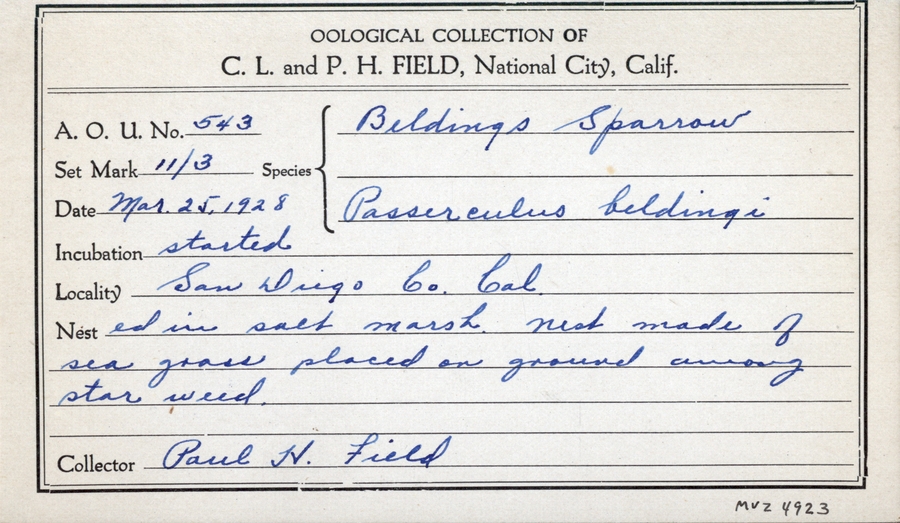 OOLOGICAL COLLECTION OF
C. L. and P. H. FIELD, National City, Calif.
A. O. U. No. 543
Beldings Sparrow
Set Mark 11/3 Species
Date Mar. 25, 1928
Passerculus beldingi
Incubation started
Locality San Diego Co. Cal.
Nest ed in salt marsh. nest made of
sea grass placed on ground among
star weed.
Collector Paul H. Field
MVZ 4923